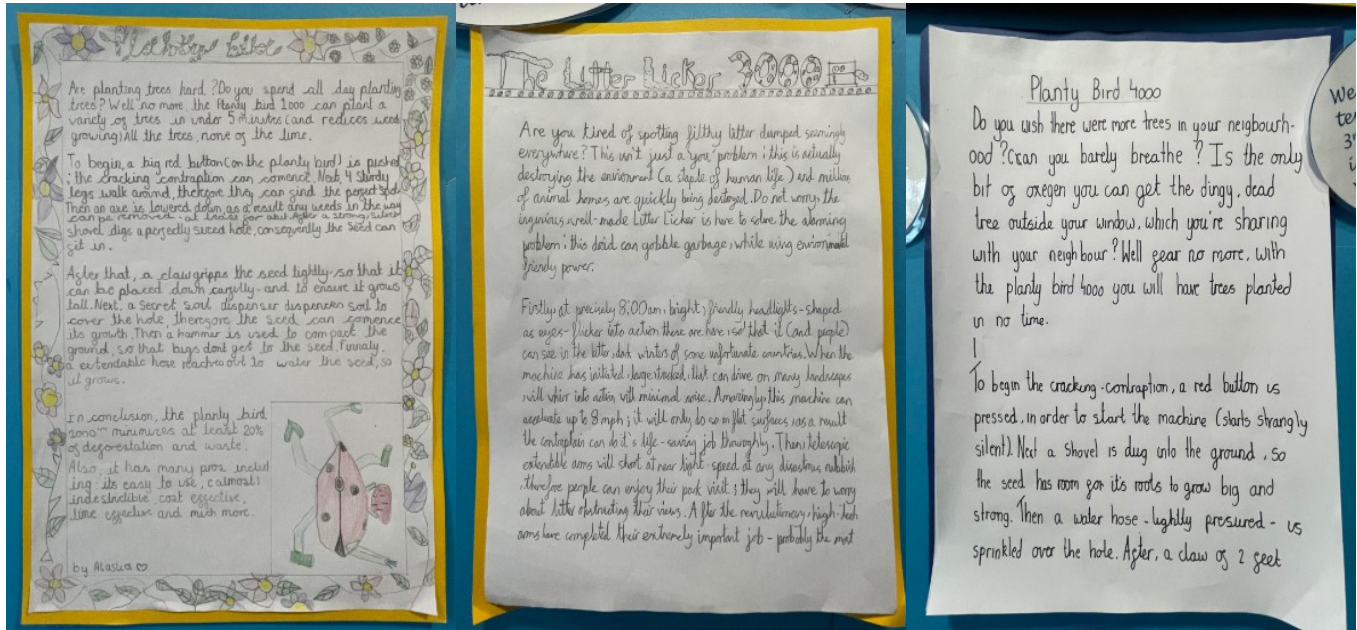 Are planting trees hard? Do you spend all day planting
trees? Well no more, the Planty bird 1000 can plant a
variety of trees in under 5 minutes (and reduces weed
growing) All the trees, none of the time.
To begin, a big red button (on the planty bird) is pushed
; the cracking contraption can comence. Next, 4 Sturdy
legs walk around, therefore they can find the perfect spot.
Then an axe is lowered down, as a result any weeds in the way
can be removed - at least for abit. After a strong,
shovel digs a perfectly sized hole, consequently the seed can
sit in.
After that, a claw gripps the seed tightly - so that it
can be placed down carefully - and to ensure it grows
tall. Next, a secret soul dispenser dispences soil to
cover the hole, therefore the seed can comence
its growth. Then a hammer is used to compact the
ground, so that bugs dont get to the seed. Finnaly,
a extendable hose reaches out to water the seed, so
it grows.
In conclusion, the planty bird
2000 minimizes at least 20%
of deforestation and waste.
Also, it has many pros includ
ing: its easy to use, (almost)
indestructible, cost effective,
time effective and much more.
by Alaska
The Litter Licker 3000
Are you tired of spotting filthy litter dumped seemingly
everywhere? This isn't just a 'you' problem; this is actually
destroying the enviroment (a staple of human life) and million
of animal homes are quickly being destroyed. Do not worry, the
ingenious, well-made Litter Licker is here to solve the alarming
problem; this druid can gobble garbage, while using enviromental
friendy power.
Firstly, at precisely 8:00am, bright, friendly headlights - shaped
as eyes - flicker into action these are here, so that it (and people)
can see in the bitter, dark winters of some unfortunate countries. When the
machine has initiated, large tracked, that can drive on many landscapes
will whir into action with minimal noise. Amazingly, this machine can
accelerate up to 8 mph; it will only do so on flat surfaces, as a result
the contraption can do it's life-saving job throughly. Then, telescopic
extendable arms will shoot at near light-speed at any disastrous rubbish
, therefore people can enjoy their park visit; they will have to worry
about litter obstructing their views. After the revolutionary, high-tech
arms have completed their extremely important job - probably the most
Planty Bird 4000
Do you wish there were more trees in your neigbourh-
ood? Can you barely breathe? Is the only
bit of oxegen you can get the dingy, dead
tree outside your window, which you're sharing
with your neighbour? Well fear no more, with
the planty bird 4000 you will have trees planted
in no time.
To begin the cracking-contraption, a red button is
pressed, in order to start the machine (starts strangly
silent). Next a shovel is dug into the ground, so
the seed has room for it's roots to grow big and
strong. Then a water hose - lightly presured - is
sprinkled over the hole. After, a claw of 2 feet
We
te
3
i